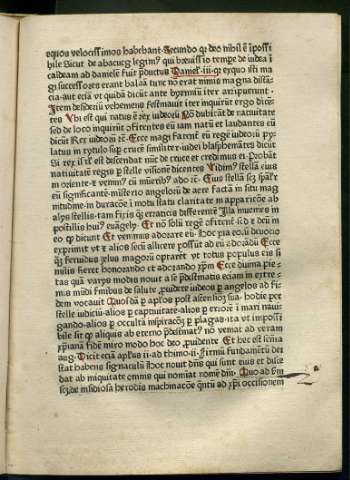 equos velocissimos habebant. Secundo qꝛ deo nihil ē īpossi
bile Sicut de abacuc legimꝰ qui breuissīo tempe de iudea ī
caldeam ad danielē fuit ꝑductus Daniel. iiij. qꝛ exquo isti ma
gi successores erant balaā tunc nō erat nimis magna distā
cia aut eciā vt quidā dicūt ante hyrmiū iter arripuerunt
Item desiderij vehemens festinauit iter inquirūt ergo dicē
tes Vbi est qui natus ē rex iudeoꝝ Nō dubitāt de natiuitate
sed de loco inquirūt ꝯfitentes eū iam natū et laudantes eū
dicūt Rex iudeoꝝ rē. Ecce magi fatent̄ eū regē iudeoꝝ pꝛy
latus in tytulo supꝛ crucē similiter. iudei blasphemātes dicūt
Si rex iſrl̄ est descendat nūc de cruce et credimus ei Probāt
natiuitatē regis ꝑ stelle visionē dicentes Vidimꝰ stellā eius
in oriente et venimꝰ cū mūeribꝰ adoꝛ rē. Eius stellā scꝫ ipalꝛ
eū significantē ministerio angeloꝝ de aere factā in situ mag
nitudine in duracōe ī motu stanti claritate ⁊ apparicōe ab
alijs stellis tam fixis qꝫ erraticis differentē Illa inuenies in
postillis huiꝰ euāgelij. Et nō solū regē ꝯfitent̄ sed ⁊ deū in
eo qꝫ dicunt Et venimus adorare eū. Hoc pia eoꝝ deuocio
exprimit vt ⁊ alios secū allicere possūt ad eū ⁊ doradū Ecce
qꝫ feruidus zelus magoꝝ optaret vt totus populus eis si
milis fieret honorando et adorando xp̄m Ecce diuina pie
tas quā varijs modis nouit a se p̄destinatis eciam in extre
mis mūdi finibus de salute ꝓuidere iudeos ꝑ angelos ad fi
dem vocauit Quosdā ꝑ aplos post ascensiōꝫ suā. hodie per
stelle iudiciū. alios ꝑ captiuitate. alios ꝑ erroꝫ ī mari naui
gando. alios ꝑ occulta inspiracōꝫ ꝑ plagas ita vt impossi
bile sit qꝫ aliquis ab eterno p̄destinatꝰ nō veniat ad veram
xp̄ianā fidē miro modo hoc deo ꝓuidente Et hec est sentēcia
aug. Dicit eciā aplūs ij. ad thimo. ij. Firmū fundamentū dei
stat habens signaculū hoc nouit dn̄s qui sunt eius et disce
dat ab iniquitate omnis qui nominat nomē dn̄i. Quo ad vlti
mū scꝫ de insidiosa herodis machinacōe q̄ntū ad xp̄i occisionem